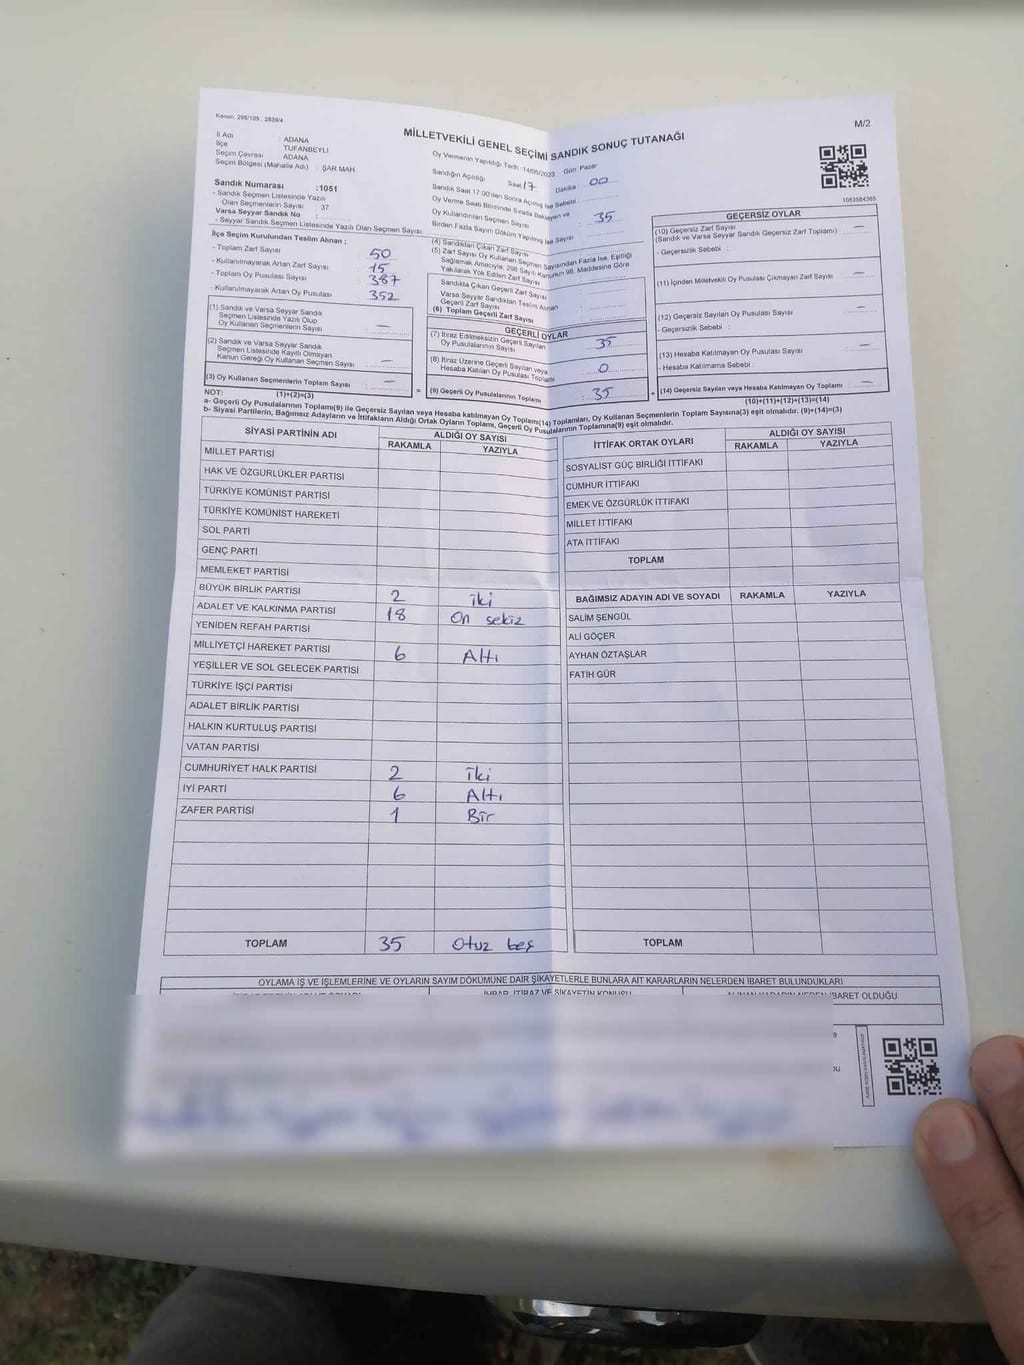 Kanun: 298/105 : 2839/4
M/2
MİLLETVEKİLİ GENEL SEÇİMİ SANDIK SONUÇ TUTANAĞI
İl Adı : ADANA
İlçe : TUFANBEYLİ
Seçim Çevrası : ADANA
Seçim Bölgesi (Mahalle Adı) : ŞAR MAH.
Sandık Numarası :1051
- Sandık Seçmen Listesinde Yazılı
Olan Seçmenlerin Sayısı : 37
Varsa Seyyar Sandık No :
- Seyyar Sandık Seçmen Listesinde Yazılı Olan Seçmen Sayısı
Oy Vermenin Yapıldığı Tarih : 14/05/2023 Gün: Pazar
Sandığın Açıldığı Saat 17 Dakika 00
Sandık Saat 17:00'den Sonra Açılmış İse Sebebi :
Oy Verme Saati Bitiminde Sırada Bekleyen ve
Oy Kullandırılan Seçmen Sayısı : 35
Birden Fazla Sayım Döküm Yapılmış İse Sayısı :
1083564365
İlçe Seçim Kurulundan Teslim Alınan ;
- Toplam Zarf Sayısı 50
- Kullanılmayarak Artan Zarf Sayısı 15
- Toplam Oy Pusulası Sayısı 387
- Kullanılmayarak Artan Oy Pusulası 352
(1) Sandık ve Varsa Seyyar Sandık
Seçmen Listesinde Yazılı Olup
Oy Kullanan Seçmenlerin Sayısı : —
(2) Sandık ve Varsa Seyyar Sandık
Seçmen Listesinde Kayıtlı Olmayan
Kanun Gereği Oy Kullanan Seçmen Sayısı : —
(3) Oy Kullanan Seçmenlerin Toplam Sayısı : —
(1)+(2)=(3)
(4) Sandıktan Çıkan Zarf Sayısı
(5) Zarf Sayısı Oy Kullanan Seçmen Sayısından Fazla İse, Eşitliği
Sağlamak Amacıyla; 298 Sayılı Kanunun 98. Maddesine Göre
Yakılarak Yok Edilen Zarf Sayısı
Sandıkta Çıkan Geçerli Zarf Sayısı
Varsa Seyyar Sandıktan Teslim Alınan
Geçerli Zarf Sayısı
(6) Toplam Geçerli Zarf Sayısı
GEÇERLİ OYLAR
(7) İtiraz Edilmeksizin Geçerli Sayılan
Oy Pusulalarının Sayısı : 35
(8) İtiraz Üzerine Geçerli Sayılan veya
Hesaba Katılan Oy Pusulası Toplamı : 0
= (9) Geçerli Oy Pusulalarının Toplamı : 35
GEÇERSİZ OYLAR
(10) Geçersiz Zarf Sayısı
(Sandık ve Varsa Seyyar Sandık Geçersiz Zarf Toplamı) : —
- Geçersizlik Sebebi :
(11) İçinden Milletvekili Oy Pusulası Çıkmayan Zarf Sayısı : —
(12) Geçersiz Sayılan Oy Pusulası Sayısı : —
- Geçersizlik Sebebi :
(13) Hesaba Katılmayan Oy Pusulası Sayısı : —
- Hesaba Katılmama Sebebi :
+ (14) Geçersiz Sayılan veya Hesaba Katılmayan Oy Toplamı : —
(10)+(11)+(12)+(13)=(14)
NOT:
a- Geçerli Oy Pusulalarının Toplamı(9) ile Geçersiz Sayılan veya Hesaba katılmayan Oy Toplamı(14) Toplamları, Oy Kullanan Seçmenlerin Toplam Sayısına(3) eşit olmalıdır. (9)+(14)=(3)
b- Siyasi Partilerin, Bağımsız Adayların ve İttifakların Aldığı Ortak Oyların Toplamı, Geçerli Oy Pusulalarının Toplamına(9) eşit olmalıdır.
SİYASİ PARTİNİN ADI ALDIĞI OY SAYISI
RAKAMLA YAZIYLA
MİLLET PARTİSİ
HAK VE ÖZGÜRLÜKLER PARTİSİ
TÜRKİYE KOMÜNİST PARTİSİ
TÜRKİYE KOMÜNİST HAREKETİ
SOL PARTİ
GENÇ PARTİ
MEMLEKET PARTİSİ
BÜYÜK BİRLİK PARTİSİ 2 iki
ADALET VE KALKINMA PARTİSİ 18 On sekiz
YENİDEN REFAH PARTİSİ
MİLLİYETÇİ HAREKET PARTİSİ 6 Altı
YEŞİLLER VE SOL GELECEK PARTİSİ
TÜRKİYE İŞÇİ PARTİSİ
ADALET BİRLİK PARTİSİ
HALKIN KURTULUŞ PARTİSİ
VATAN PARTİSİ
CUMHURİYET HALK PARTİSİ 2 İki
İYİ PARTİ 6 Altı
ZAFER PARTİSİ 1 Bir
TOPLAM 35 Otuz beş
İTTİFAK ORTAK OYLARI ALDIĞI OY SAYISI
RAKAMLA YAZIYLA
SOSYALİST GÜÇ BİRLİĞİ İTTİFAKI
CUMHUR İTTİFAKI
EMEK VE ÖZGÜRLÜK İTTİFAKI
MİLLET İTTİFAKI
ATA İTTİFAKI
TOPLAM
BAĞIMSIZ ADAYIN ADI VE SOYADI RAKAMLA YAZIYLA
SALİM ŞENGÜL
ALİ GÖÇER
AYHAN ÖZTAŞLAR
FATİH GÜR
TOPLAM
OYLAMA İŞ VE İŞLEMLERİNE VE OYLARIN SAYIM DÖKÜMÜNE DAİR ŞİKAYETLERLE BUNLARA AİT KARARLARIN NELERDEN İBARET BULUNDUKLARI
İHBAR, İTİRAZ VE ŞİKAYETİN KONUSU
İBARET OLDUĞU